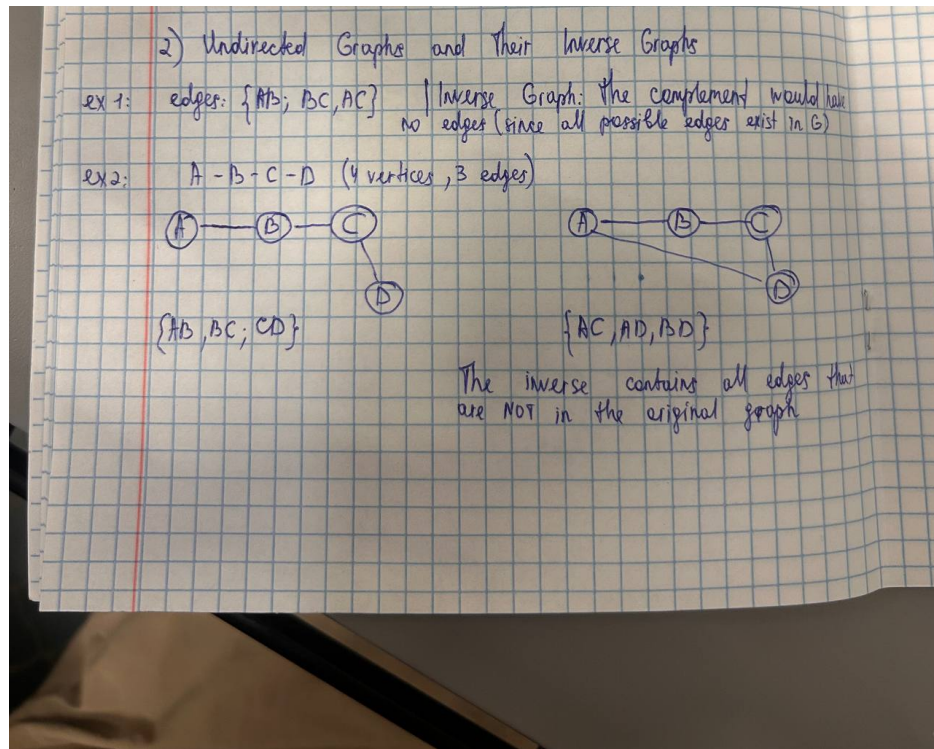 2) Undirected Graphs and Their Inverse Graphs
ex 1: edges: {AB; BC, AC} | Inverse Graph: The complement would have
no edges (since all possible edges exist in G)
ex 2: A - B - C - D (4 vertices, 3 edges)
A B C A B C
D D
{AB, BC; CD} {AC, AD, BD}
The inverse contains all edges that
are NOT in the original graph